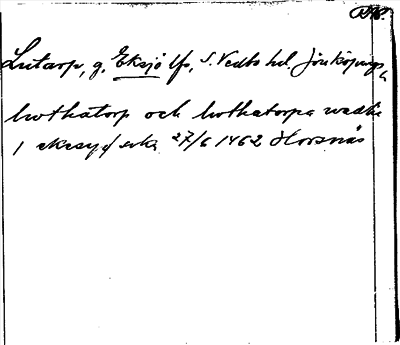 Lutarp, g. Eksjö lfs, S. Vedbo hd. Jönköpings
lwthatorp och lwthatorpa
i ekesyo 27/6 1462 Horsnäs